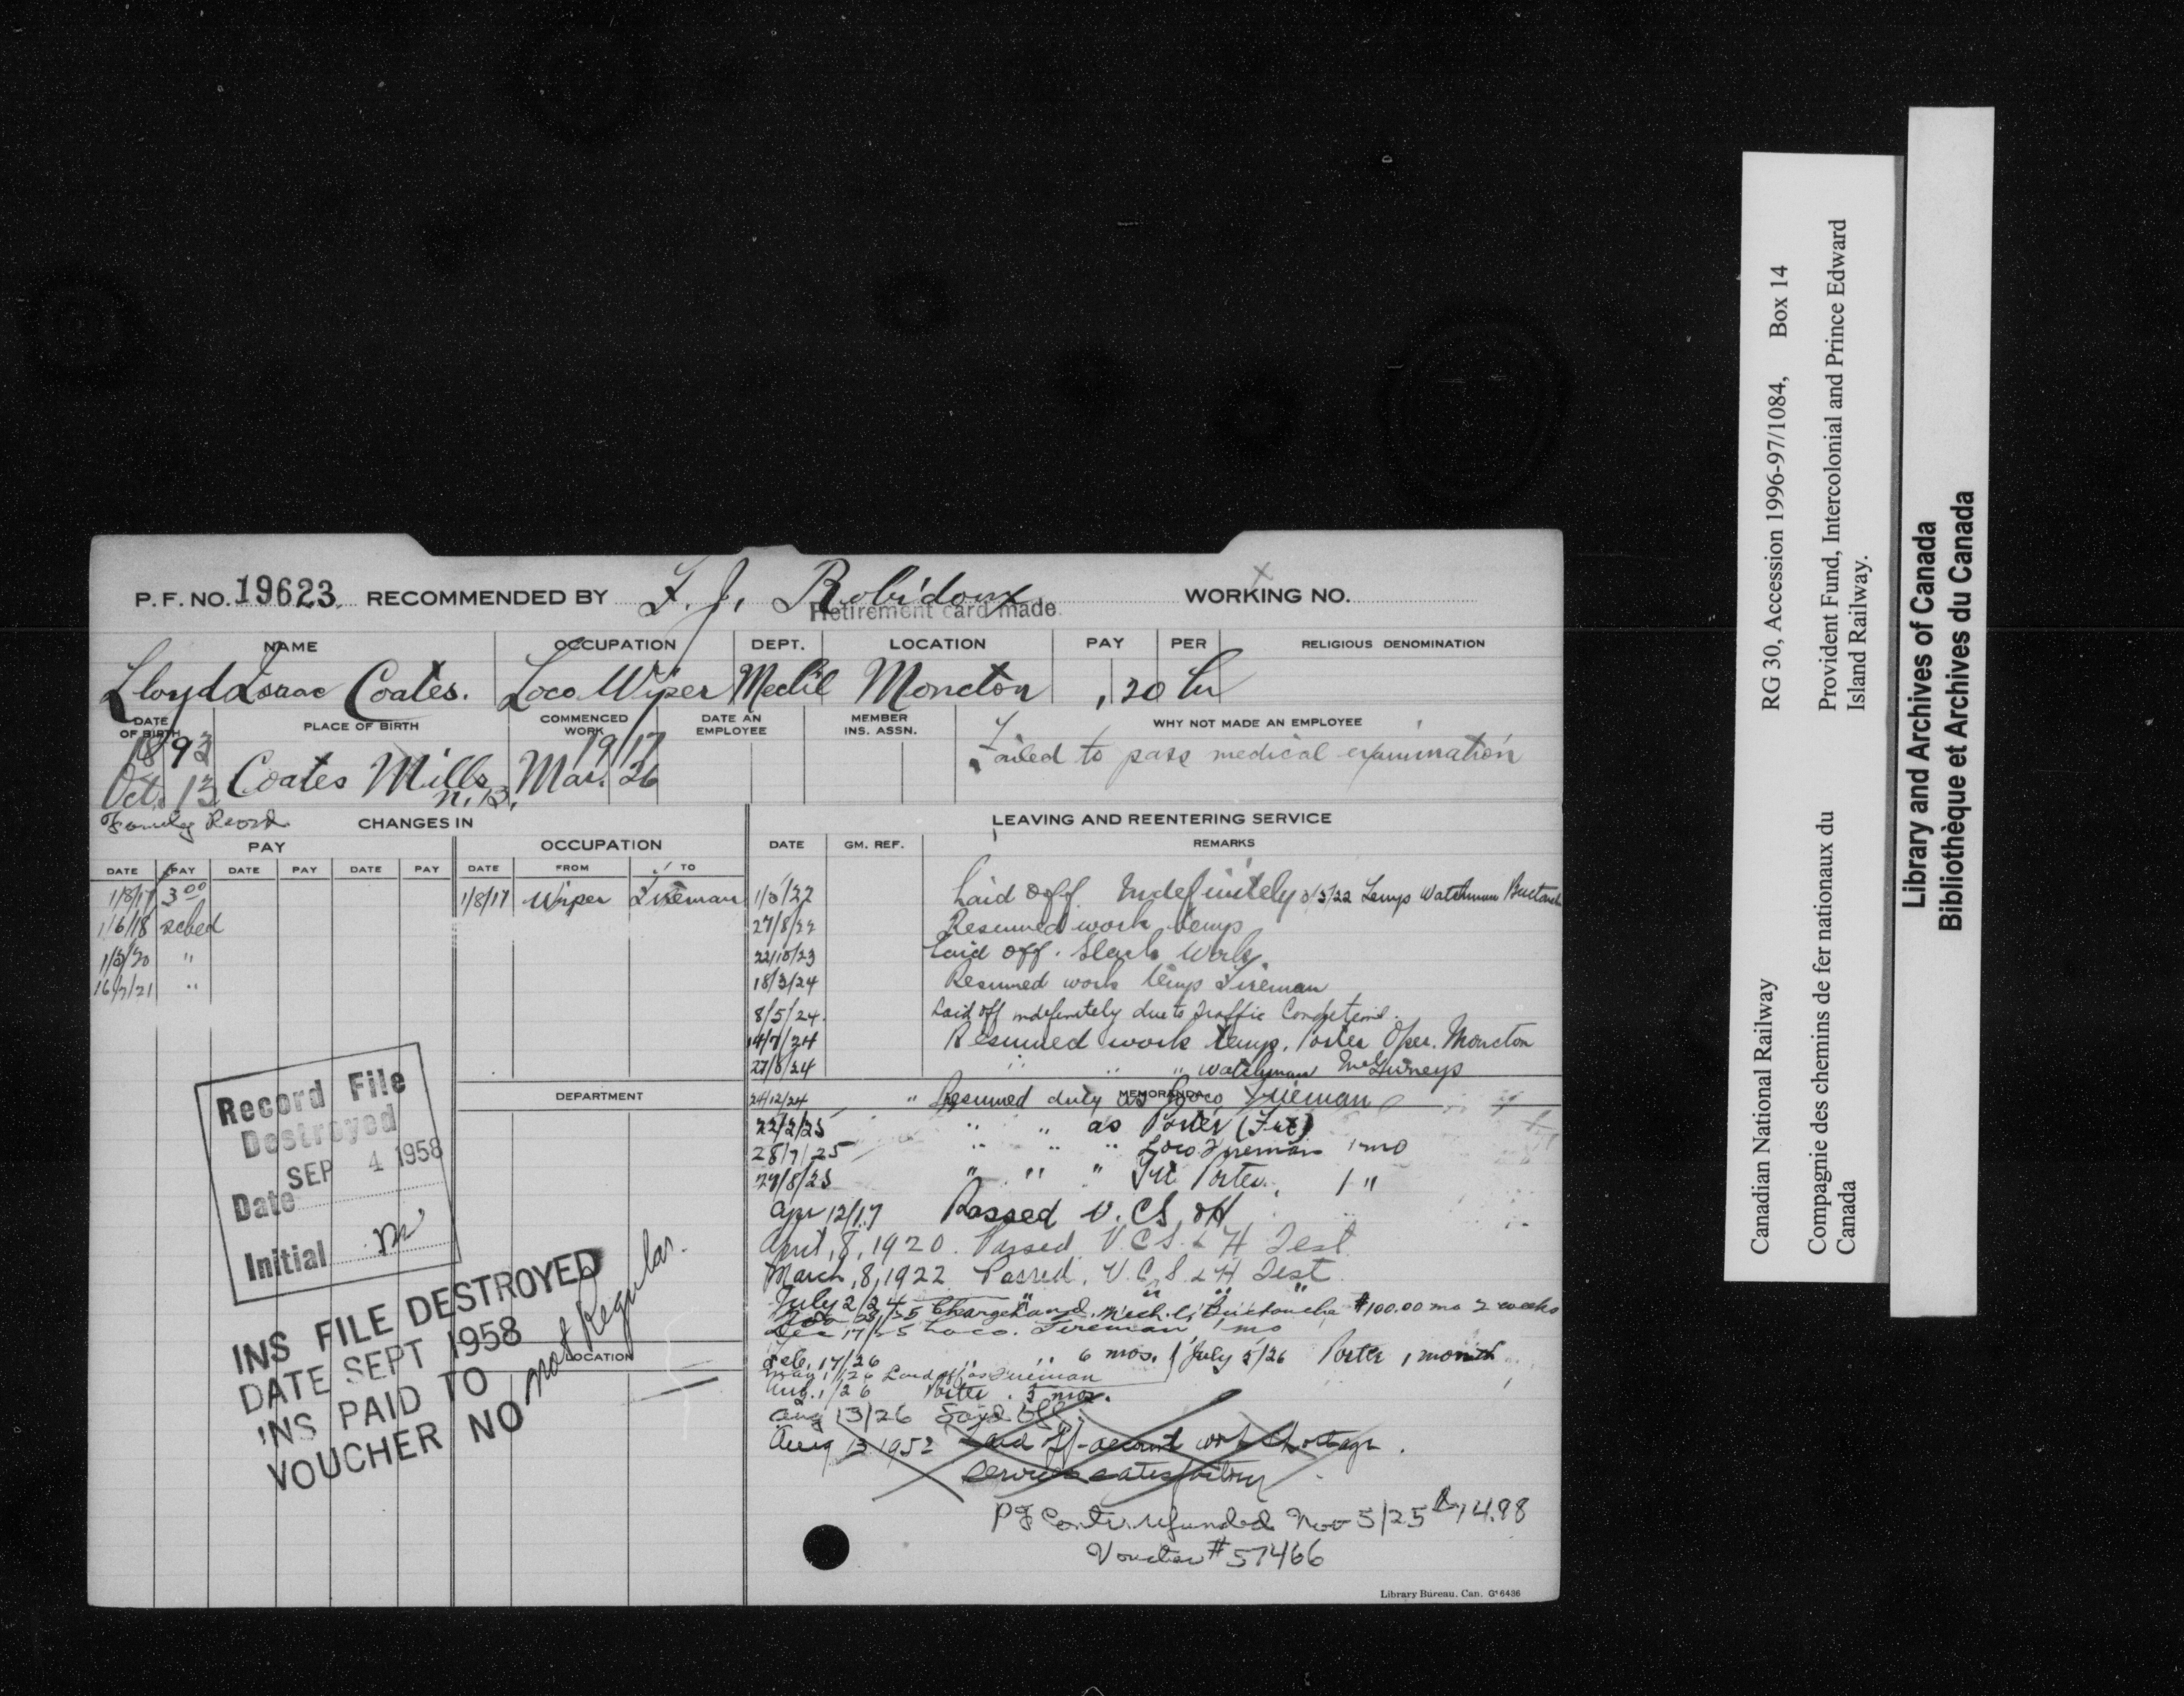 P. F. NO. 19623 RECOMMENDED BY F. J. Robidoux WORKING NO.
Retirement card made
NAME OCCUPATION DEPT. LOCATION PAY PER RELIGIOUS DENOMINATION
Lloyd Isaac Coates. Loco Wiper Mech'l Moncton .20 hr
DATE OF BIRTH PLACE OF BIRTH COMMENCED WORK DATE AN EMPLOYEE MEMBER INS. ASSN. WHY NOT MADE AN EMPLOYEE
1893 1917 Failed to pass medical examination
Oct. 13 Coates Mills N.B. Mar. 26
Family Record
CHANGES IN
PAY OCCUPATION
DATE PAY DATE PAY DATE PAY DATE FROM TO
1/8/17 3 00 1/8/17 Wiper Fireman
1/6/18 sched
1/5/20 "
16/7/21 "
DEPARTMENT
LOCATION
Record File
Destroyed
SEP 4 1958
Date
Initial
INS FILE DESTROYED
DATE SEPT 1958
INS PAID TO
VOUCHER NO
not Regular.
LEAVING AND REENTERING SERVICE
DATE GM. REF. REMARKS
Laid off Indefinitely Temp Watchman
27/8/22 Resumed work temp
22/10/23 Laid off. Slack Work.
18/3/24 Resumed work temp Fireman
8/5/24 Laid off indefinitely due to Traffic
14/7/24 Resumed work temp. Porter Oper. Moncton
27/8/24 " " " Watchman McGivneys
MEMORANDA
24/12/24 " Resumed duty as Loco Fireman
22/2/25 " " as Porter
28/7/25 " " " Loco Fireman 1 mo
27/8/25 " " " Porter 1 "
Apr 12/17 Passed V. C S & H
April, 8, 1920. Passed V. C S. & H Test.
March, 8, 1922 Passed, V. C. S. & H Test.
July 2/24 " " " "
Chargehand. Mech. Buctouche $100.00 mo 2 weeks
Dec 17/25 Loco. Fireman 1 mo
Feb. 17/26 " " 6 mos. July 5/26 Porter 1 month
Laid off as Fireman
Aug. 1/26 Porter. 3 mos.
Aug 13/26 Laid Off.
Aug 13 1952 Laid off - account work shortage.
services satisfactory
P F Contr. refunded Nov 5/25 14.98
Voucher # 57466
Library Bureau. Can. G 6436
Canadian National Railway RG 30, Accession 1996-97/1084, Box 14
Compagnie des chemins de fer nationaux du Canada
Provident Fund, Intercolonial and Prince Edward Island Railway.
Library and Archives of Canada
Bibliothèque et Archives du Canada